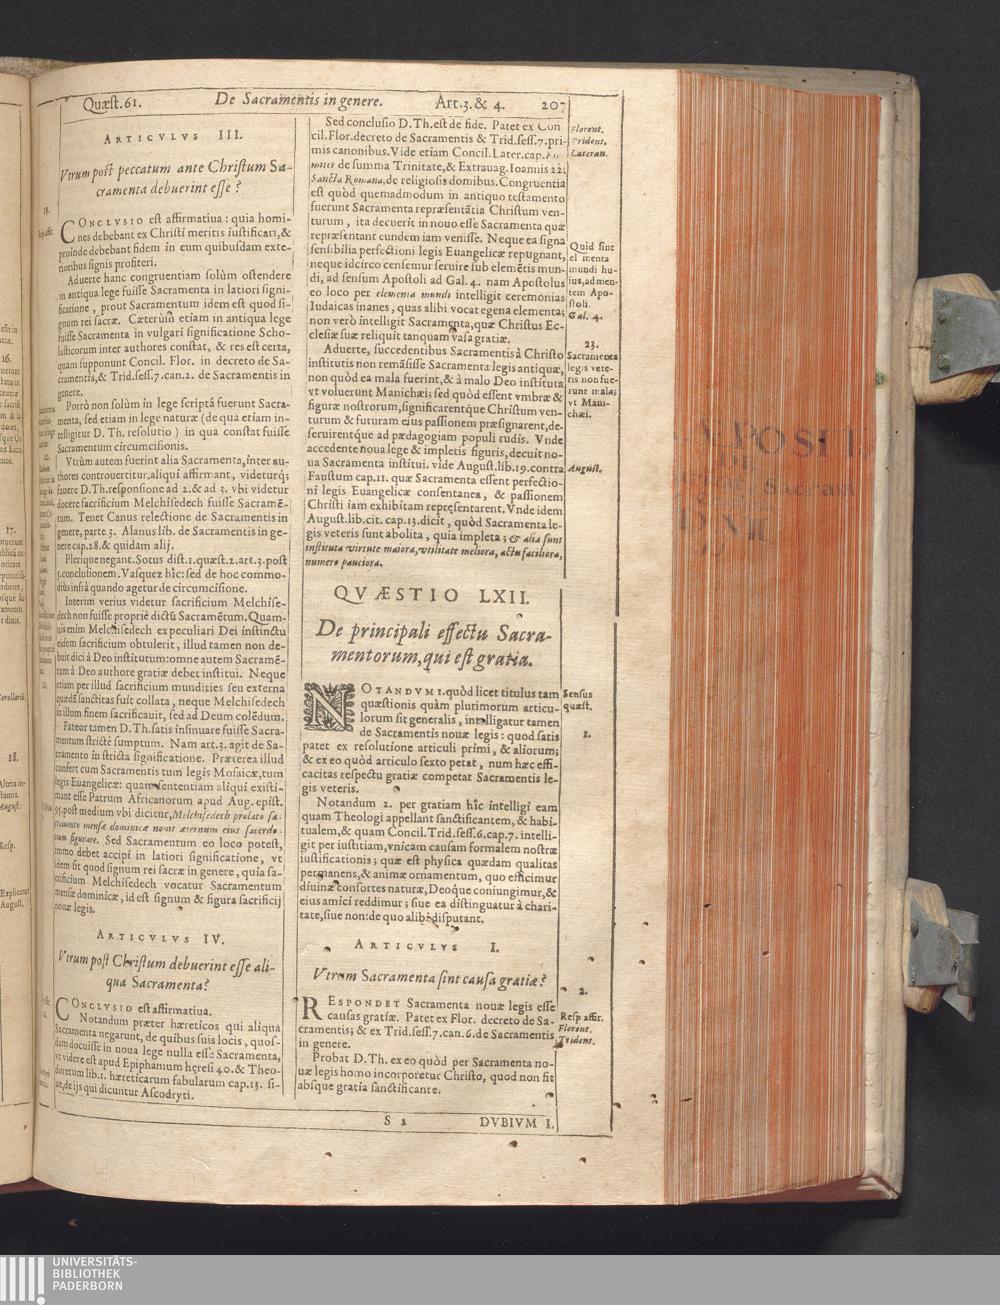 Quæst.61. De Sacramentis in genere. Art.3. & 4. 207
ARTICVLVS III.
Vtrum post peccatum ante Christum Sa-
cramenta debuerint esse?
CONCLVSIO est affirmatiua: quia homi-
nes debebant ex Christi meritis iustificari, &
proinde debebant fidem in eum quibusdam exte-
rioribus signis profiteri.
Aduerte hanc congruentiam solùm ostendere
in antiqua lege fuisse Sacramenta in latiori signi-
ficatione, prout Sacramentum idem est quod si-
gnum rei sacræ. Cæterùm etiam in antiqua lege
fuisse Sacramenta in vulgari significatione Scho-
lasticorum inter authores constat, & res est certa,
quam supponunt Concil. Flor. in decreto de Sa-
cramentis,& Trid.sess.7.can.2. de Sacramentis in
genere.
Porrò non solùm in lege scriptâ fuerunt Sacra-
menta, sed etiam in lege naturæ (de qua etiam in-
telligitur D. Th. resolutio) in qua constat fuisse
Sacramentum circumcisionis.
Vtrùm autem fuerint alia Sacramenta, inter au-
thores controuertitur. aliqui affirmant, videturq;
fauere D.Th.responsione ad 2.& ad 3. vbi videtur
docere sacrificium Melchisedech fuisse Sacramē-
tum. Tenet Canus relectione de Sacramentis in
genere, parte 3. Alanus lib. de Sacramentis in ge-
nere cap.28.& quidam alij.
Plerique negant. Sotus dist.1.quæst.2.art.3.post
3.conclusionem. Vasquez hîc: sed de hoc commo-
diùs infrà quando agetur de circumcisione.
Interim verius videtur sacrificium Melchise-
dech non fuisse propriè dictū Sacramētum. Quam-
uis enim Melchisedech ex peculiari Dei instinctu
eidem sacrificium obtulerit, illud tamen non de-
buit dici à Deo institutum: omne autem Sacramē-
tum à Deo authore gratiæ debet institui. Neque
etiam per illud sacrificium mundities seu externa
quædā sanctitas fuit collata, neque Melchisedech
in illum finem sacrificauit, sed ad Deum colēdum.
Fateor tamen D.Th. satis insinuare fuisse Sacra-
mentum strictè sumptum. Nam art.3. agit de Sa-
cramento in stricta significatione. Præterea illud
confert cum Sacramentis tum legis Mosaicæ, tum
legis Euangelicæ: quam sententiam aliqui existi-
mant esse Patrum Africanorum apud Aug. epist.
95.post medium vbi dicitur, Melchisedech prolato sa-
cramento mensæ dominicæ nouit æternum eius sacerdo-
tium figurare. Sed Sacramentum eo loco potest,
immo debet accipi in latiori significatione, vt
idem sit quod signum rei sacræ in genere, quia sa-
crificium Melchisedech vocatur Sacramentum
mensæ dominicæ, id est signum & figura sacrificij
nouæ legis.
ARTICVLVS IV.
Vtrum post Christum debuerint esse ali-
qua Sacramenta?
CONCLVSIO est affirmatiua.
Notandum præter hæreticos qui aliqua
Sacramenta negarunt, de quibus suis locis, quos-
dam docuisse in noua lege nulla esse Sacramenta,
vt videre est apud Epiphanium heresi 40. & Theo-
doretum lib.1. hæreticarum fabularum cap.13. si-
ue, de ijs qui dicuntur Ascodryti.
Sed conclusio D.Th.est de fide. Patet ex Con
cil.Flor.decreto de Sacramentis & Trid.sess.7.pri-
mis canonibus. Vide etiam Concil. Later.cap.
de summa Trinitate,& Extrauag. Ioannis 22.
Sancta Romana, de religiosis domibus. Congruentia
est quòd quemadmodum in antiquo testamento
fuerunt Sacramenta repræsentātia Christum ven-
turum, ita decuerit in nouo esse Sacramenta quæ
repræsentant eundem iam venisse. Neque ea signa
sensibilia perfectioni legis Euangelicæ repugnant,
neque idcirco censemur seruire sub elemētis mun-
di, ad sensum Apostoli ad Gal. 4. nam Apostolus
eo loco per elementa mundi intelligit ceremonias
Iudaicas inanes, quas alibi vocat egena elementa;
non verò intelligit Sacramenta, quæ Christus Ec-
clesiæ suæ reliquit tanquam vasa gratiæ.
Aduerte, succedentibus Sacramentis à Christo
institutis non remāsisse Sacramenta legis antiquæ,
non quòd ea mala fuerint,& à malo Deo instituta
vt voluerunt Manichæi; sed quòd essent vmbræ &
figuræ nostrorum, significarentque Christum ven-
turum & futuram eius passionem præsignarent, de-
seruirentque ad pædagogiam populi rudis. Vnde
accedente noua lege & impletis figuris, decuit no-
ua Sacramenta institui. vide August.lib.19.contra
Faustum cap.11. quæ Sacramenta essent perfectio-
ni legis Euangelicæ consentanea, & passionem
Christi iam exhibitam repręsentarent. Vnde idem
August.lib.cit. cap.13.dicit, quòd Sacramenta le-
gis veteris sunt abolita, quia impleta; & alia sunt
instituta virtute maiora, vtilitate meliora, actu faciliora,
numero pauciora.
QVÆSTIO LXII.
De principali effectu Sacra-
mentorum, qui est gratia.
NOTANDVM 1. quòd licet titulus tam
quæstionis quàm plurimorum articu-
lorum sit generalis, intelligatur tamen
de Sacramentis nouæ legis: quod satis
patet ex resolutione articuli primi, & aliorum;
& ex eo quòd articulo sexto petat, num hæc effi-
cacitas respectu gratiæ competat Sacramentis le-
gis veteris.
Notandum 2. per gratiam hîc intelligi eam
quam Theologi appellant sanctificantem, & habi-
tualem,& quam Concil.Trid.sess.6.cap.7. intelli-
git per iustitiam, vnicam causam formalem nostræ
iustificationis; quæ est physica quædam qualitas
permanens,& animæ ornamentum, quo efficimur
diuinæ consortes naturæ, Deoque coniungimur,&
eius amici reddimur; siue ea distinguatur à chari-
tate, siue non: de quo alibi disputant.
ARTICVLVS I.
Vtrum Sacramenta sint causa gratiæ?
RESPONDET Sacramenta nouæ legis esse
causas gratiæ. Patet ex Flor. decreto de Sa-
cramentis; & ex Trid.sess.7.can.6.de Sacramentis
in genere.
Probat D.Th. ex eo quòd per Sacramenta no-
uæ legis homo incorporetur Christo, quod non fit
absque gratia sanctificante.
S 2 DVBIVM I.
Florent.
Trident.
Lateran.
Quid sint
elementa
mundi hu-
ius, ad men-
tem Apo-
stoli.
Gal. 4.
23.
Sacramenta
legis vete-
ris non fue-
runt mala;
vt Mani-
chæi.
August.
Sensus
quæst.
1.
2.
Resp affir.
Florent.
Trident.
16.
17.
18.
Corollariū.
Resp.
August.
UNIVERSITÄTS-
BIBLIOTHEK
PADERBORN